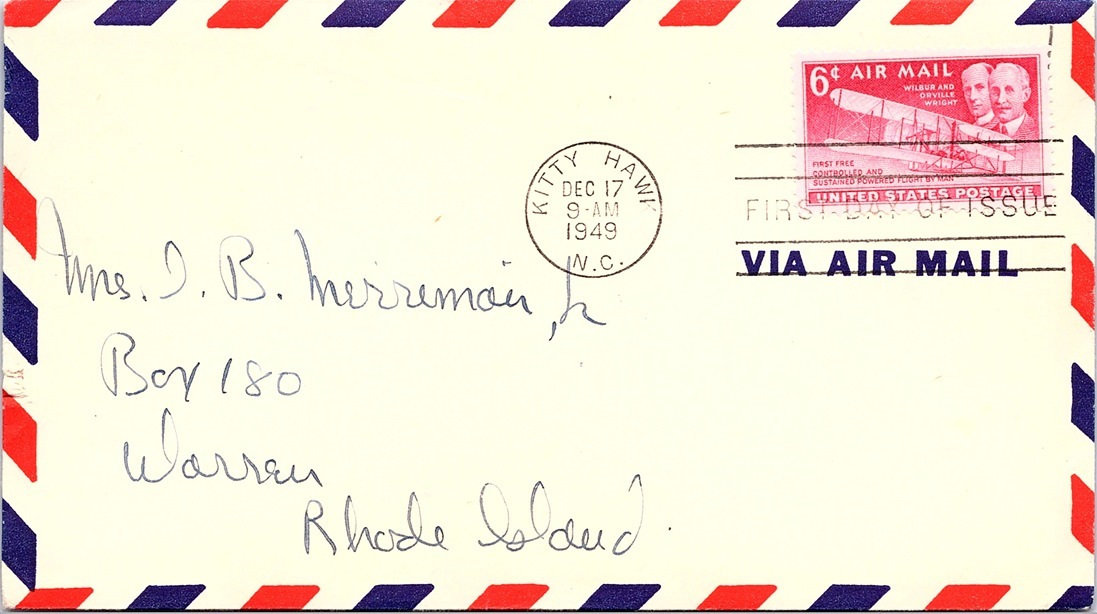 6¢ AIR MAIL
WILBUR AND
ORVILLE
WRIGHT
FIRST FREE
CONTROLLED AND
SUSTAINED POWERED FLIGHT BY MAN
UNITED STATES POSTAGE
KITTY HAWK
DEC 17
9-AM
1949
N.C.
FIRST DAY OF ISSUE
VIA AIR MAIL
Mrs. I. B. Merriman, Jr
Box 180
Warren
Rhode Island.